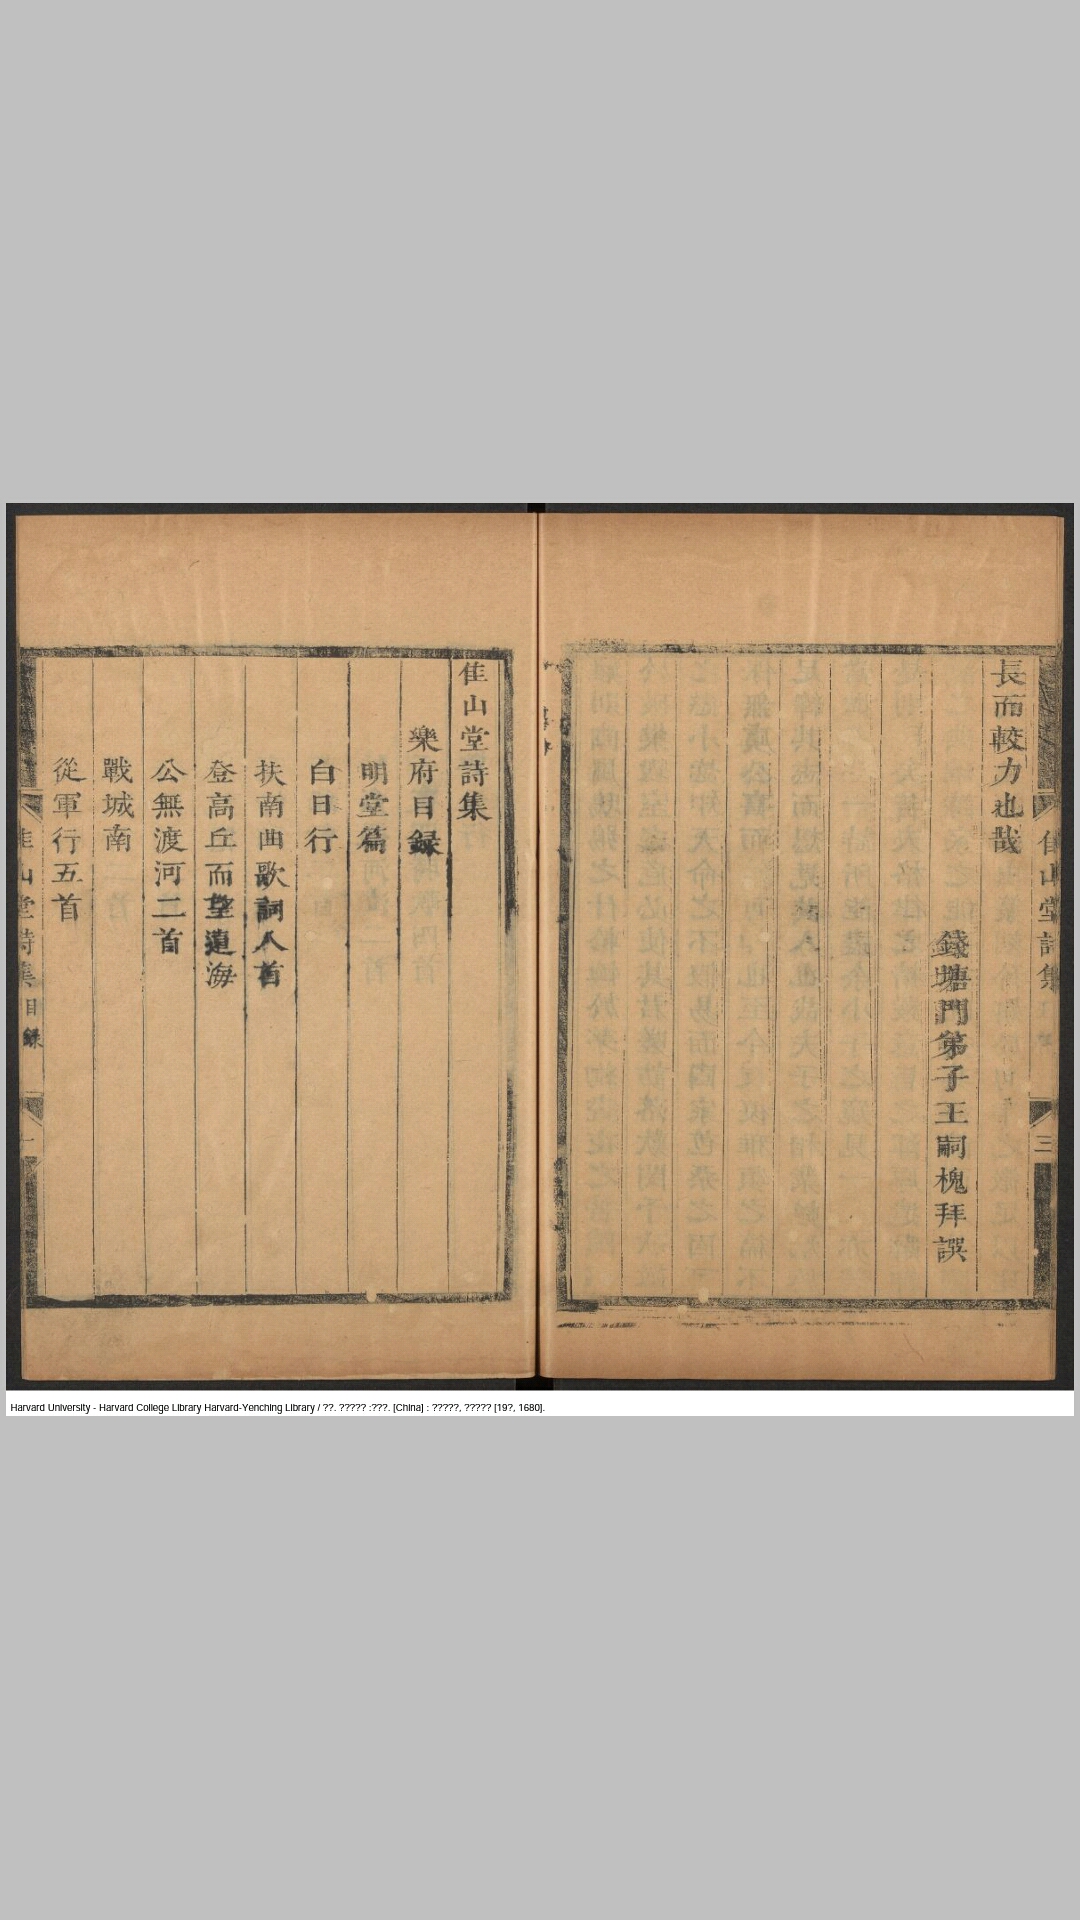 長而較力也哉
錢塘門第子王嗣槐拜譔
隹山堂詩集
三
隹山堂詩集
樂府目録
明堂篇
白日行
扶南曲歌詞八首
登高丘而望遠海
公無渡河二首
戰城南
從軍行五首
隹山堂詩集目録
一
Harvard University - Harvard College Library Harvard-Yenching Library / ??. ????? :???. [China] : ?????, ????? [19?, 1680].